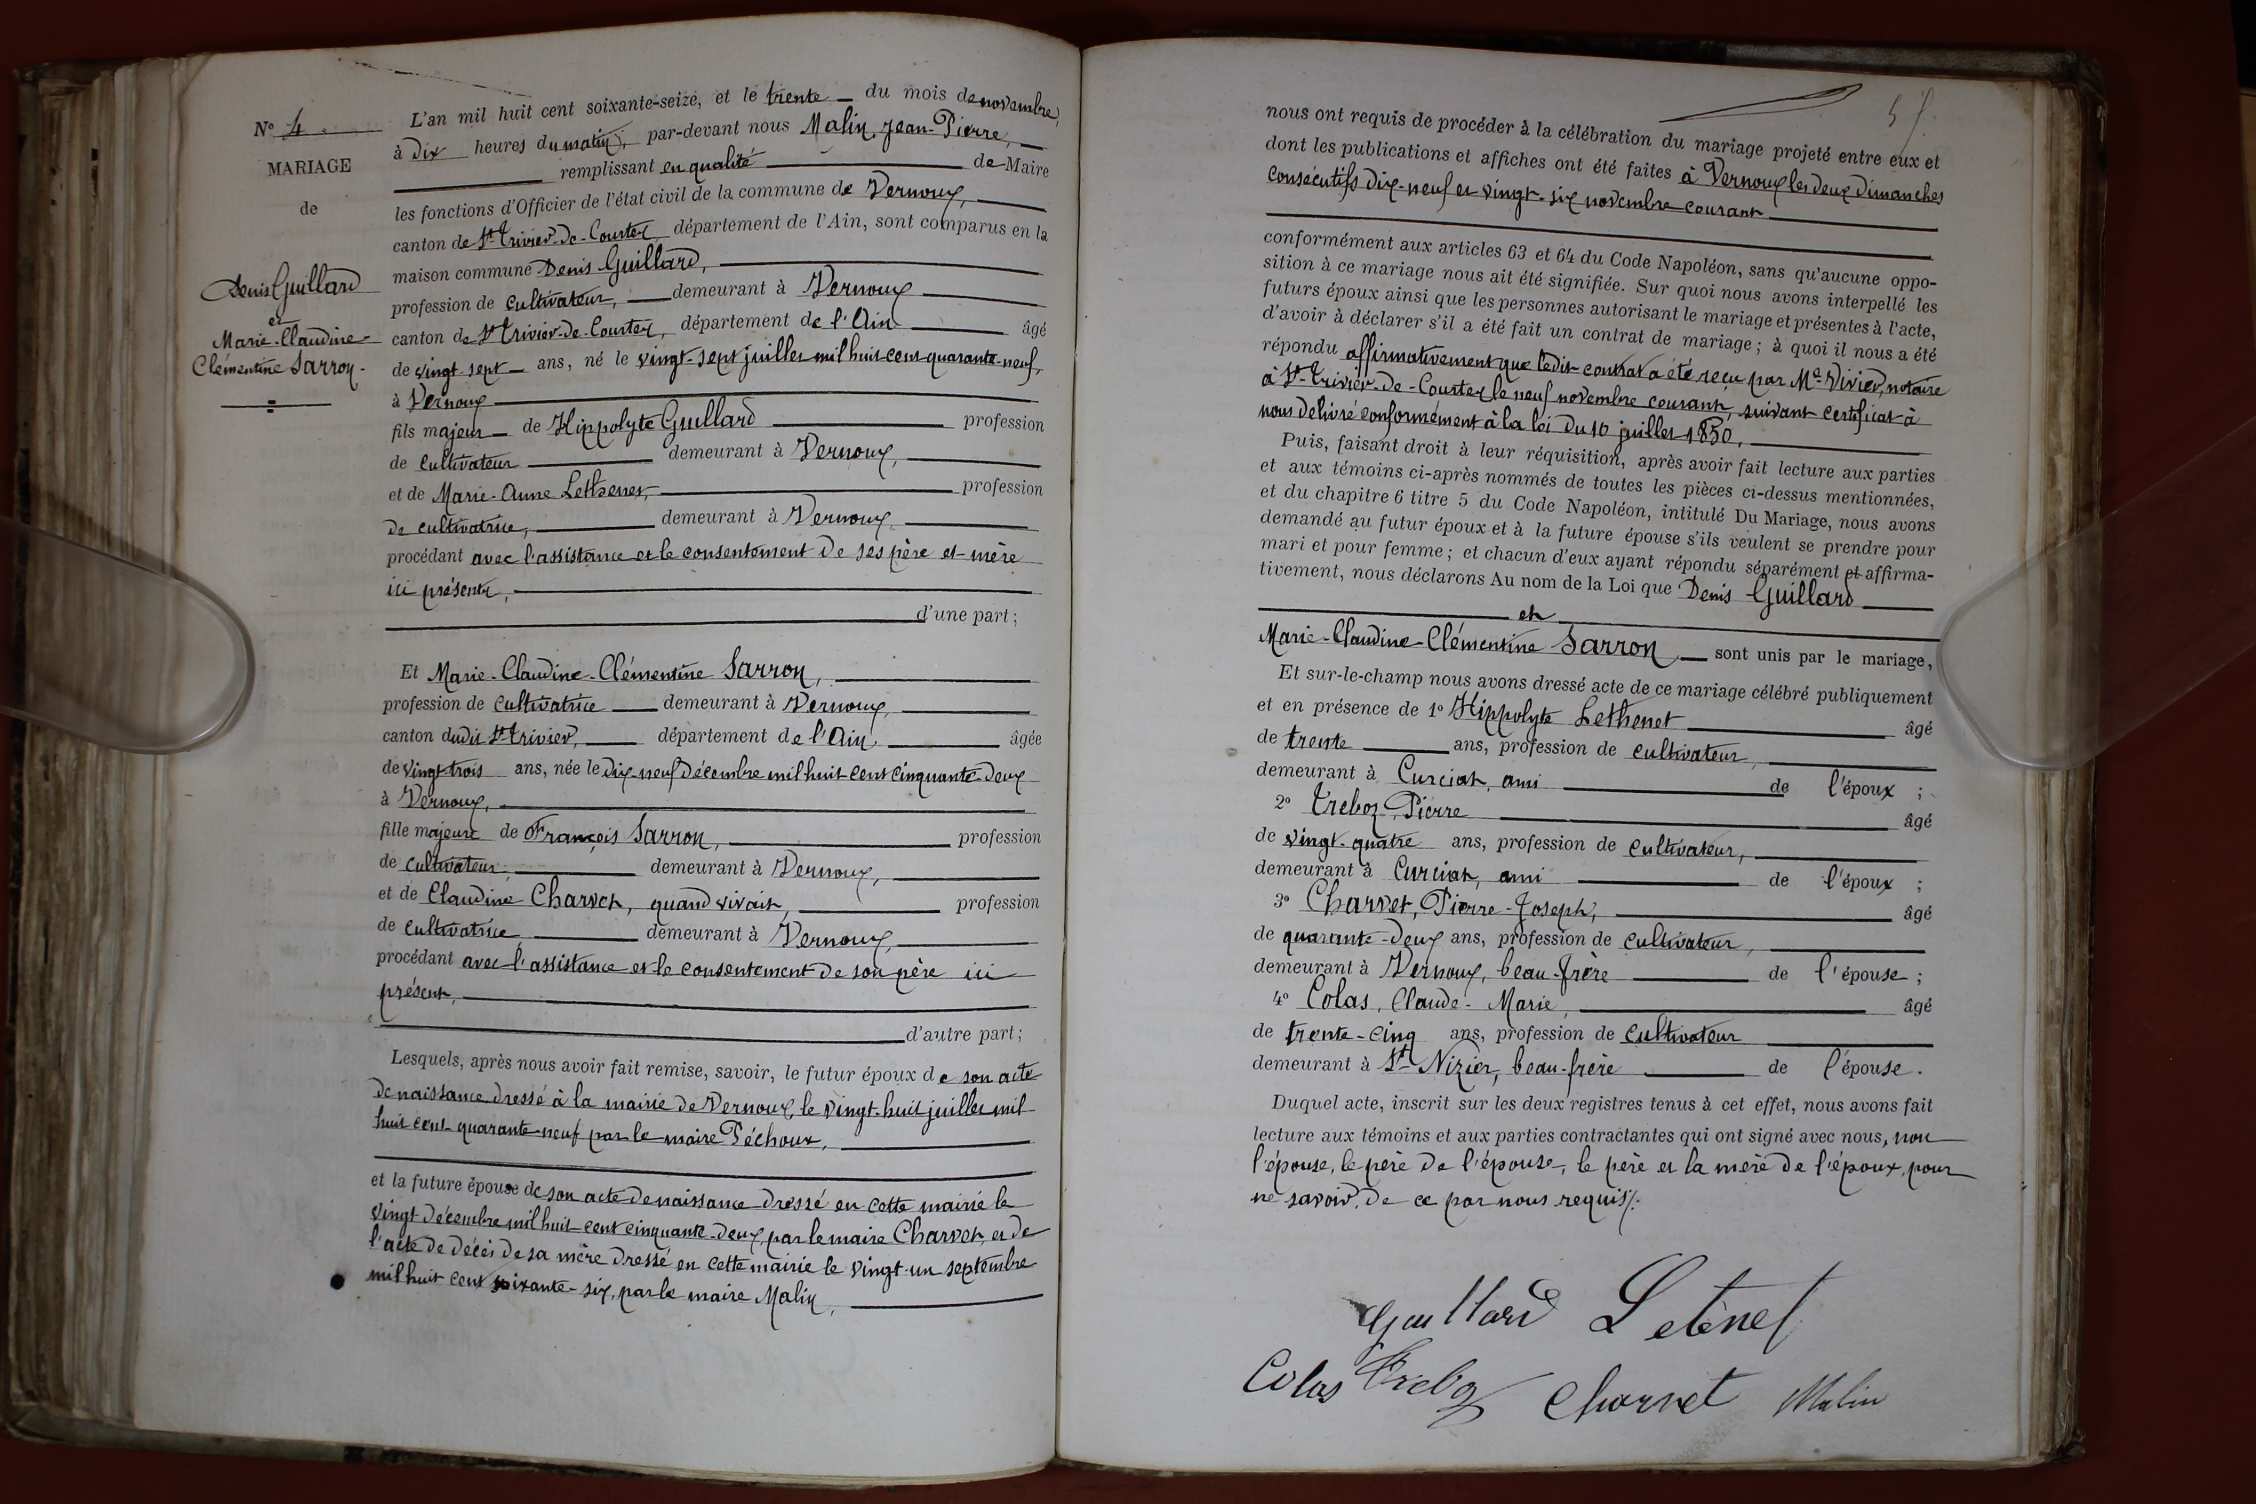 N° 4
MARIAGE
de
Denis Guillard
et
Marie-Claudine-
Clémentine Sarron.
L'an mil huit cent soixante-seize, et le trente du mois de novembre,
à Dix heures du matin, par-devant nous Malin, Jean-Pierre,
remplissant en qualité de Maire
les fonctions d'Officier de l'état civil de la commune de Vernoux,
canton de St-Trivier-de-Courtes, département de l'Ain, sont comparus en la
maison commune Denis Guillard,
profession de cultivateur, demeurant à Vernoux
canton de St Trivier-de-Courtes, département de l'Ain âgé
de vingt-sept ans, né le vingt-sept juillet mil huit cent quarante-neuf,
à Vernoux
fils majeur de Hippolyte Guillard profession
de cultivateur demeurant à Vernoux,
et de Marie-Anne Lethenet, profession
de cultivatrice, demeurant à Vernoux
procédant avec l'assistance et le consentement de ses père et mère
ici présents,
d'une part;
Et Marie-Claudine-Clémentine Sarron,
profession de cultivatrice demeurant à Vernoux,
canton dudit St Trivier, département de l'Ain, âgée
de vingt-trois ans, née le dix-neuf décembre mil huit cent cinquante-deux
à Vernoux,
fille majeure de François Sarron, profession
de cultivateur, demeurant à Vernoux,
et de Claudine Charvet, quand vivait, profession
de cultivatrice demeurant à Vernoux,
procédant avec l'assistance et le consentement de son père ici
présent,
d'autre part;
Lesquels, après nous avoir fait remise, savoir, le futur époux de son acte
de naissance dressé à la mairie de Vernoux, le vingt-huit juillet mil
huit cent quarante-neuf par le maire Péchoux,
et la future épouse de son acte de naissance dressé en cette mairie le
vingt décembre mil huit cent cinquante-deux, par le maire Charvet, et de
l'acte de décès de sa mère dressé en cette mairie le vingt-un septembre
mil huit cent soixante-six, par le maire Malin,
nous ont requis de procéder à la célébration du mariage projeté entre eux et
dont les publications et affiches ont été faites à Vernoux les deux dimanches
consécutifs dix-neuf et vingt-six novembre courant
conformément aux articles 63 et 64 du Code Napoléon, sans qu'aucune oppo-
sition à ce mariage nous ait été signifiée. Sur quoi nous avons interpellé les
futurs époux ainsi que les personnes autorisant le mariage et présentes à l'acte,
d'avoir à déclarer s'il a été fait un contrat de mariage; à quoi il nous a été
répondu affirmativement que ledit contrat a été reçu par Me Vivier, notaire
à St-Trivier-de-Courtes le neuf novembre courant, suivant certificat à
nous délivré conformément à la loi du 10 juillet 1850,
Puis, faisant droit à leur réquisition, après avoir fait lecture aux parties
et aux témoins ci-après nommés de toutes les pièces ci-dessus mentionnées,
et du chapitre 6 titre 5 du Code Napoléon, intitulé Du Mariage, nous avons
demandé au futur époux et à la future épouse s'ils veulent se prendre pour
mari et pour femme; et chacun d'eux ayant répondu séparément et affirma-
tivement, nous déclarons Au nom de la Loi que Denis Guillard
et
Marie-Claudine-Clémentine Sarron sont unis par le mariage,
Et sur-le-champ nous avons dressé acte de ce mariage célébré publiquement
et en présence de 1° Hippolyte Lethenet âgé
de trente ans, profession de cultivateur,
demeurant à Curciat, ami de l'époux;
2° Treboz, Pierre âgé
de vingt-quatre ans, profession de cultivateur,
demeurant à Curciat, ami de l'époux;
3° Charvet, Pierre-Joseph, âgé
de quarante-deux ans, profession de cultivateur,
demeurant à Vernoux, beau-frère de l'épouse;
4° Colas, Claude-Marie, âgé
de trente-cinq ans, profession de cultivateur
demeurant à St-Nizier, beau-frère de l'épouse.
Duquel acte, inscrit sur les deux registres tenus à cet effet, nous avons fait
lecture aux témoins et aux parties contractantes qui ont signé avec nous, non
l'épouse, le père de l'épouse, le père et la mère de l'époux, pour
ne savoir, de ce par nous requis/.
Guillard Letènet
Colas Treboz Charvet Malin